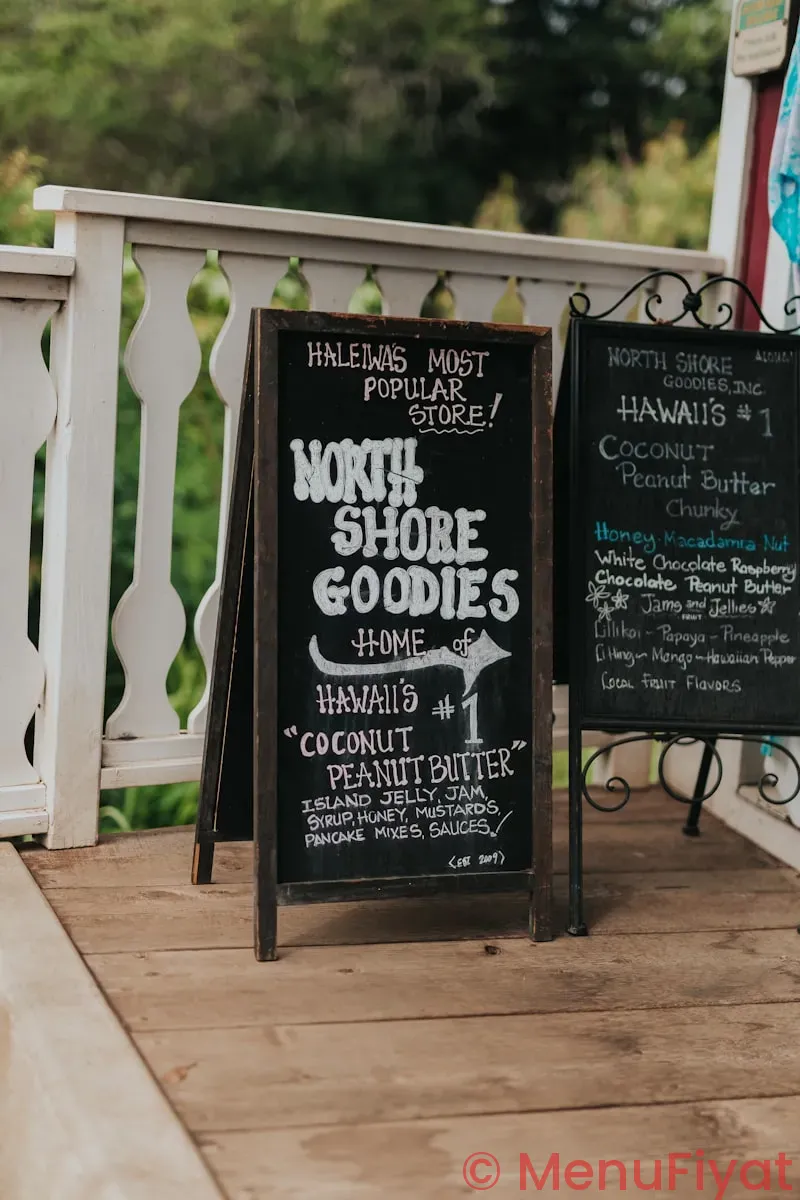 HALEIWA'S MOST
POPULAR
STORE!
NORTH
SHORE
GOODIES
HOME of
HAWAII'S
#1
"COCONUT
PEANUT BUTTER"
ISLAND JELLY, JAM,
SYRUP, HONEY, MUSTARDS,
PANCAKE MIXES, SAUCES.
(EST 2009)
NORTH SHORE
GOODIES, INC.
HAWAII'S #1
COCONUT
Peanut Butter
Chunky
Honey-Macadamia Nut
White Chocolate Raspberry
Chocolate Peanut Butter
Jams and Jellies
FRUIT
Lilikoi - Papaya - Pineapple
Mango - Hawaiian Pepper
Local Fruit Flavors
© MenuFiyat